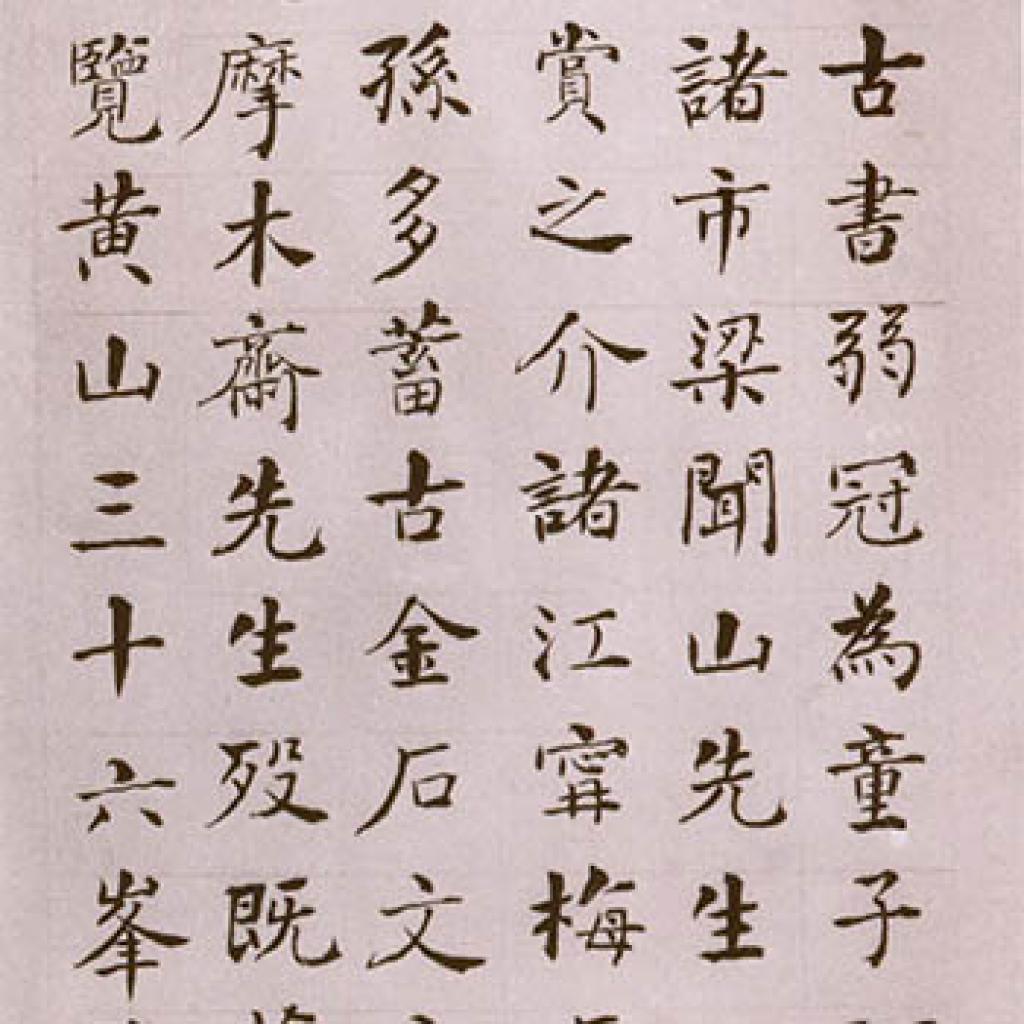 古書弱冠為童子
諸市梁聞山先生
賞之介諸江寧梅
孫多蓄古金石文
摩木齋先生歿既
覽黄山三十六峯